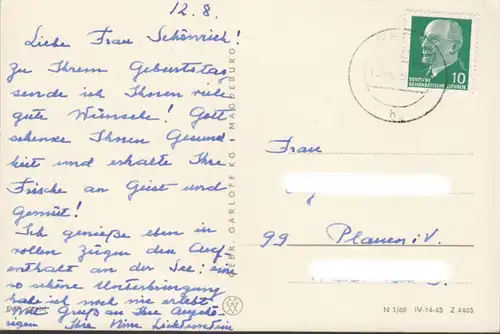 12.8.
Liebe Frau Schönrich!
Zu Ihrem Geburtstag
sende ich Ihnen viele
gute Wünsche! Gott
schenke Ihnen Gesund
heit und erhalte Ihre
Frische an Geist und
Gemüt!
Ich genieße eben in
vollen Zügen den Auf-
enthalt an der See: eine
so schöne Unterbringung
habe ich noch nie erlebt.
Gruß an Ihre Angehö-
rigen. Ihre Lichtenstein
GEBR. GARLOFF KG MAGDEBURG
10
DEUTSCHE
DEMOKRATISCHE REPUBLIK
h
Frau
99 Plauen i. V.
N 1/69 IV-14-45 Z 4465